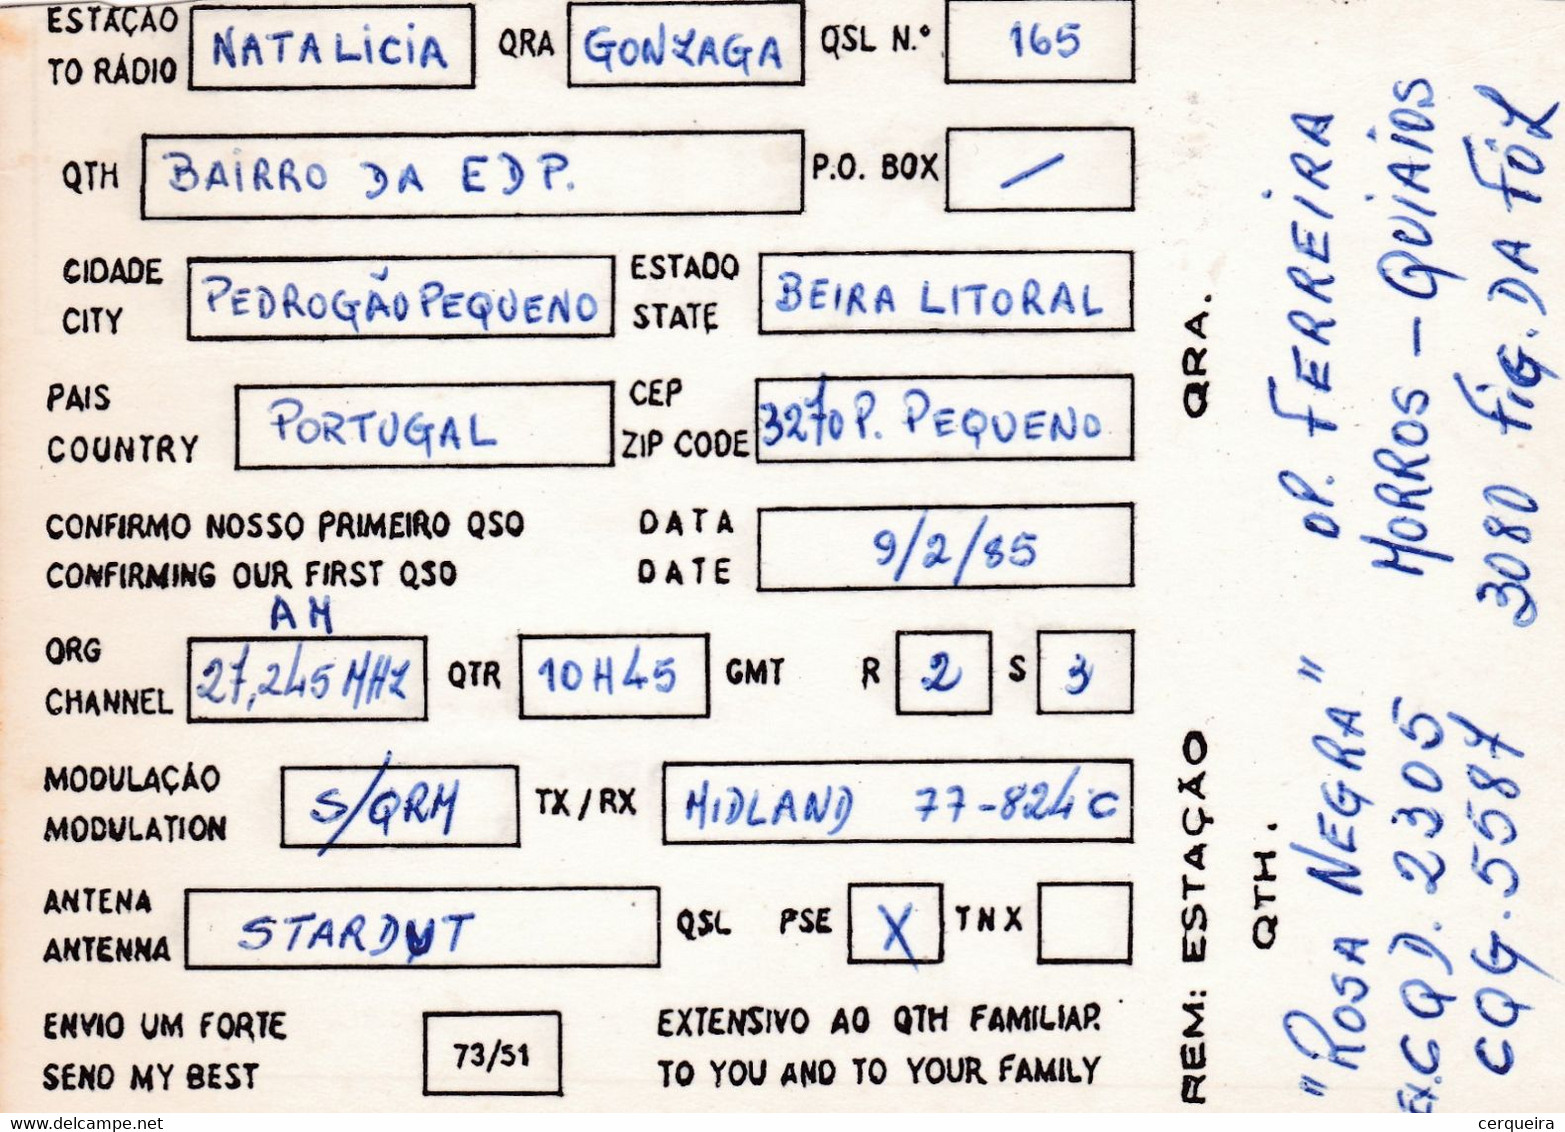 ESTAÇÃO TO RÁDIO NATALICIA QRA GONZAGA QSL N.º 165
QTH BAIRRO DA EDP. P.O. BOX /
CIDADE CITY PEDROGÃO PEQUENO ESTADO STATE BEIRA LITORAL
PAIS COUNTRY PORTUGAL CEP ZIP CODE 3270 P. PEQUENO
CONFIRMO NOSSO PRIMEIRO QSO DATA
CONFIRMING OUR FIRST QSO DATE 9/2/85
AM
QRG CHANNEL 27,245 MHZ QTR 10H45 GMT R 2 S 3
MODULAÇÃO MODULATION S/QRM TX/RX MIDLAND 77-824C
ANTENA ANTENNA STARDUT QSL PSE X TNX
ENVIO UM FORTE 73/51 EXTENSIVO AO QTH FAMILIAR.
SEND MY BEST TO YOU AND TO YOUR FAMILY
REM: ESTAÇÃO QRA.
QTH.
"ROSA NEGRA" OP. FERREIRA
CQD. 2305 MORROS - QUIAIOS
CQG. 5587 3080 FIG. DA FOZ
www.delcampe.net
cerqueira